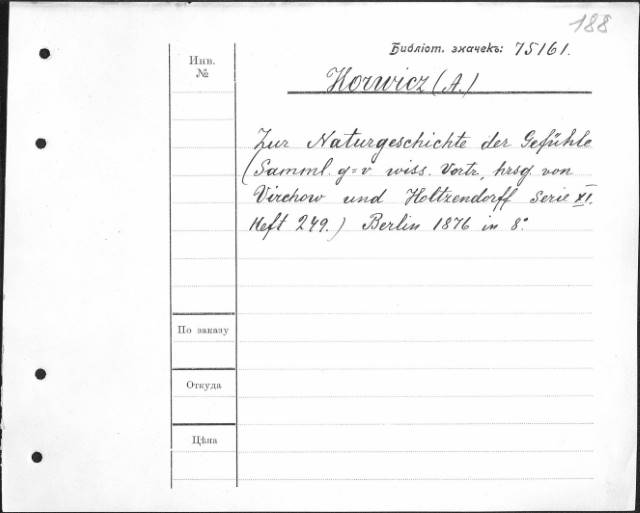 188
Библіот. значекъ: 75161.
Инв.
№
Horwicz (A.)
Zur Naturgeschichte der Gefühle
(Samml. g=v wiss. Vortr., hrsg. von
Virchow und Holtzendorff Serie XI.
Heft 249.) Berlin 1876 in 8°.
По заказу
Откуда
Цѣна